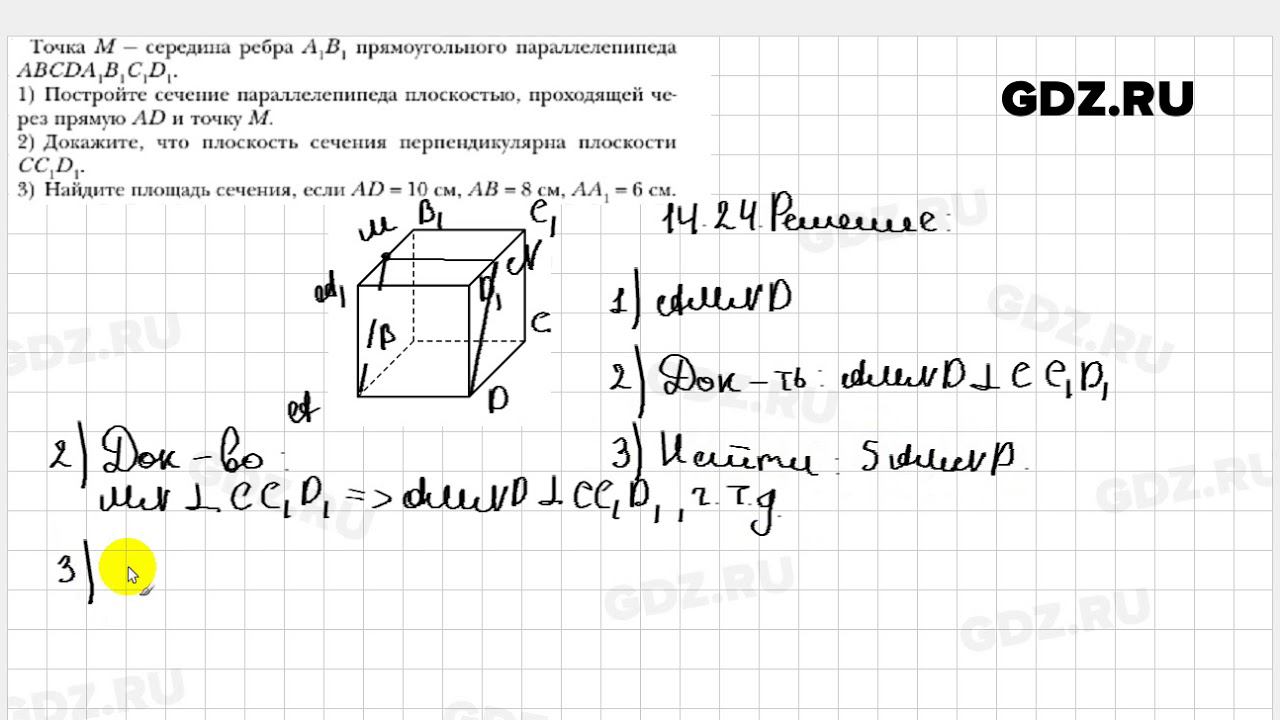 Точка M — середина ребра A₁B₁ прямоугольного параллелепипеда
ABCDA₁B₁C₁D₁.
1) Постройте сечение параллелепипеда плоскостью, проходящей че-
рез прямую AD и точку M.
2) Докажите, что плоскость сечения перпендикулярна плоскости
CC₁D₁.
3) Найдите площадь сечения, если AD = 10 см, AB = 8 см, AA₁ = 6 см.
GDZ.RU
M B₁ C₁
N
A₁ D₁
B C
A D
14.24. Решение:
1) AMND
2) Док-ть: AMND ⊥ CC₁D₁
3) Найти: SAMND.
2) Док-во:
MN ⊥ CC₁D₁ => AMND ⊥ CC₁D₁, ч.т.д.
3)
GDZ.RU
GDZ.RU
GDZ.RU
GDZ.RU
GDZ.RU
GDZ.RU
GDZ.RU
GDZ.RU
GDZ.RU
GDZ.RU